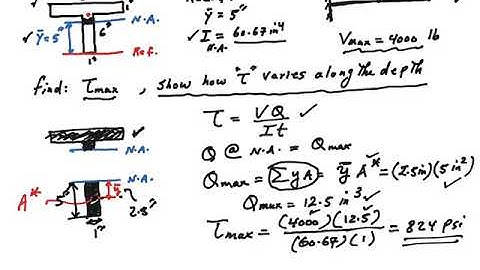 1"
N.A.
ȳ=5"
6"
1"
Ref.
ȳ = 5"
I N.A. = 60.67 in⁴
Vmax = 4000 lb
find: τmax , show how "τ" varies along the depth
τ = VQ / It
N.A.
Q @ N.A. = Qmax
Qmax = ΣyA = ȳ A* = (2.5in)(5 in²)
Qmax = 12.5 in³
τmax = (4000)(12.5) / (60.67)(1) = 824 psi
A*
5"
N.A.
ȳ
2.5"
1"